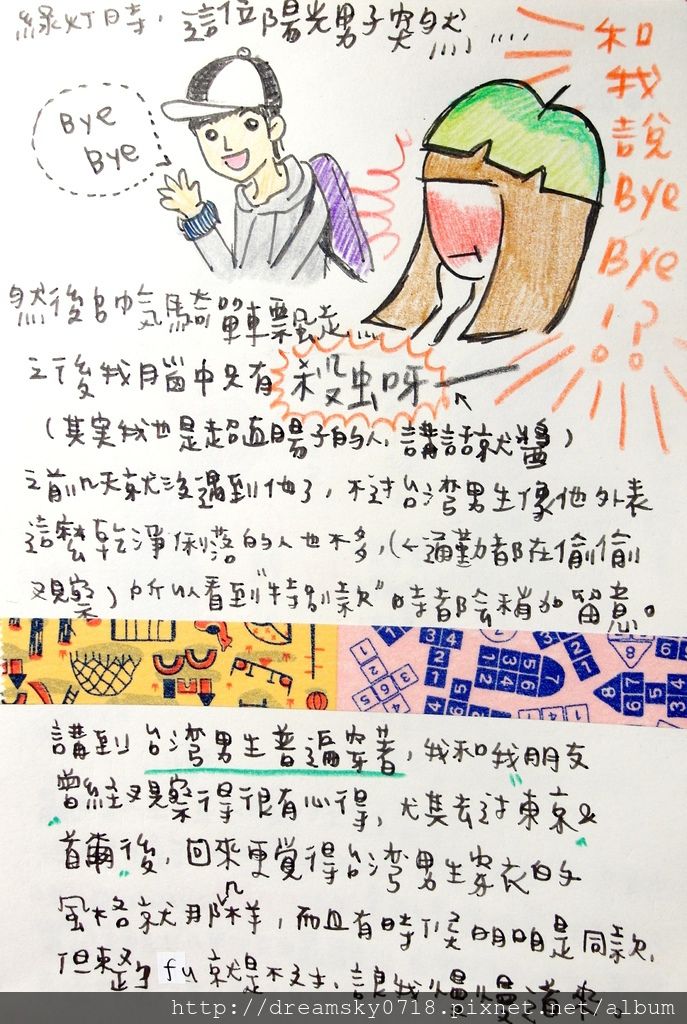 綠灯時，這位陽光男子突然....
Bye
Bye
和
我
說
Bye
Bye
!?
然後帥氣騎單車飄走...
之後我腦中只有 殺虫呀
(其實我也是超直腸子的人,講話就醬)
之前幾天就沒遇到他了，不过台湾男生像他外表
這麼乾淨俐落的人也不多,(←通勤都在偷偷
观察)所以看到"特別款"時都会稍加留意。
講到台湾男生普遍穿著，我和我朋友
曾經观察得很有心得，尤其去过東京&
首爾後，回來更覺得台湾男生穿衣的
風格就那样，而且有時候明明是同款,
但整个fu就是不对,讓我慢慢道來。
http://dreamsky0718.pixnet.net/album